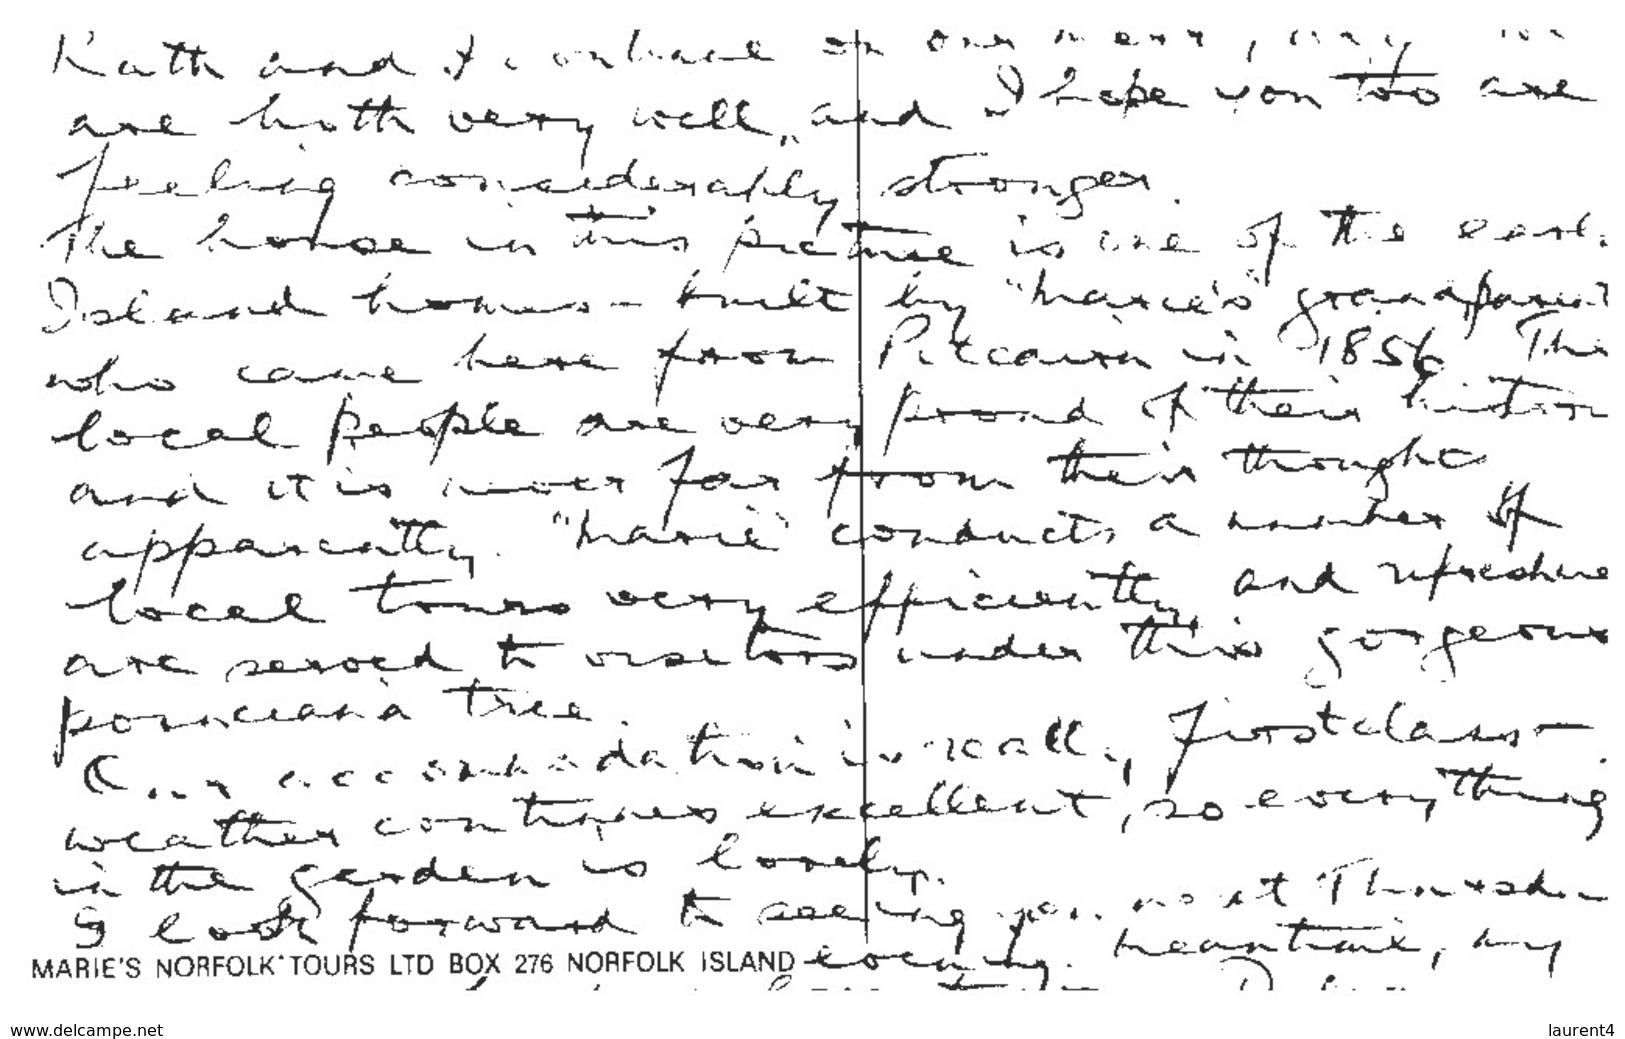 Kath and I embark on our next, 
are both very well, and I hope you too are
feeling considerably stronger.
The house in this picture is one of the
Island homes - built by "Marie's"
who came here from Pitcairn in 1856 The
local people are very proud of their
and it is never far from their thoughts
apparently. "Marie" conducts a number of
local tours very efficiently, and
are served to visitors under this gorgeous
poinciana tree.
Our accommodation is really first class -
weather continues excellent, so everything
in the garden is lovely.
I look forward to seeing you next
MARIE'S NORFOLK TOURS LTD BOX 276 NORFOLK ISLAND evening. Meantime, my
www.delcampe.net
laurent4